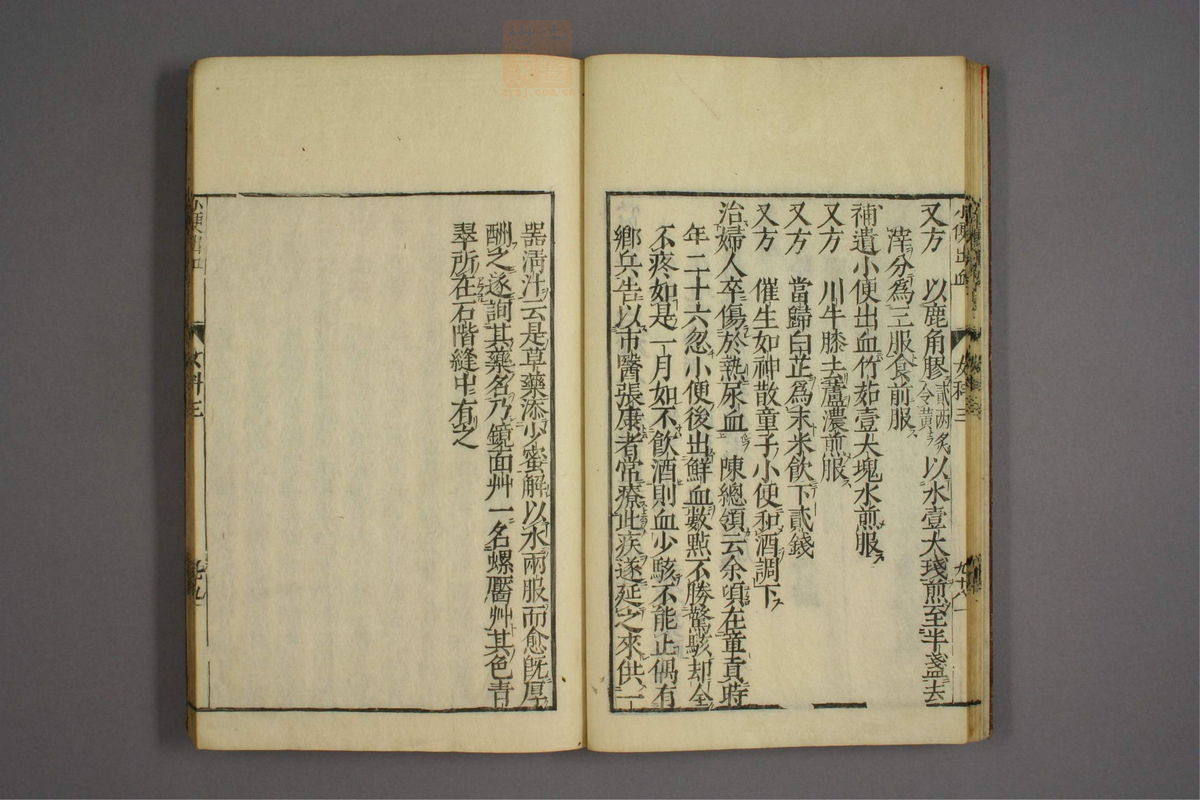 又方　以鹿角膠貳兩炙令黃以水壹大琖煎至半盞去
滓分爲三服食前服
補遺小便出血竹茹壹大塊水煎服
又方　川牛膝去蘆濃煎服
又方　當歸白芷爲末米飲下貳錢
又方　催生如神散童子小便和酒調下
治婦人卒傷於熱尿血　陳總領云余頃在童貢時
年二十六忽小便後出鮮血數點不勝驚駭却全
不疼如是一月如不飲酒則血少駭不能止偶有
鄉兵告以市醫張康者常療此疾遂延之來供一
器清汁云是草藥添少蜜解以水兩服而愈既厚
酬之遂詢其藥名乃鏡面艸一名螺靨艸其色青
翠所在石階縫中有之
小便出血
女科三
小便出血
女科三